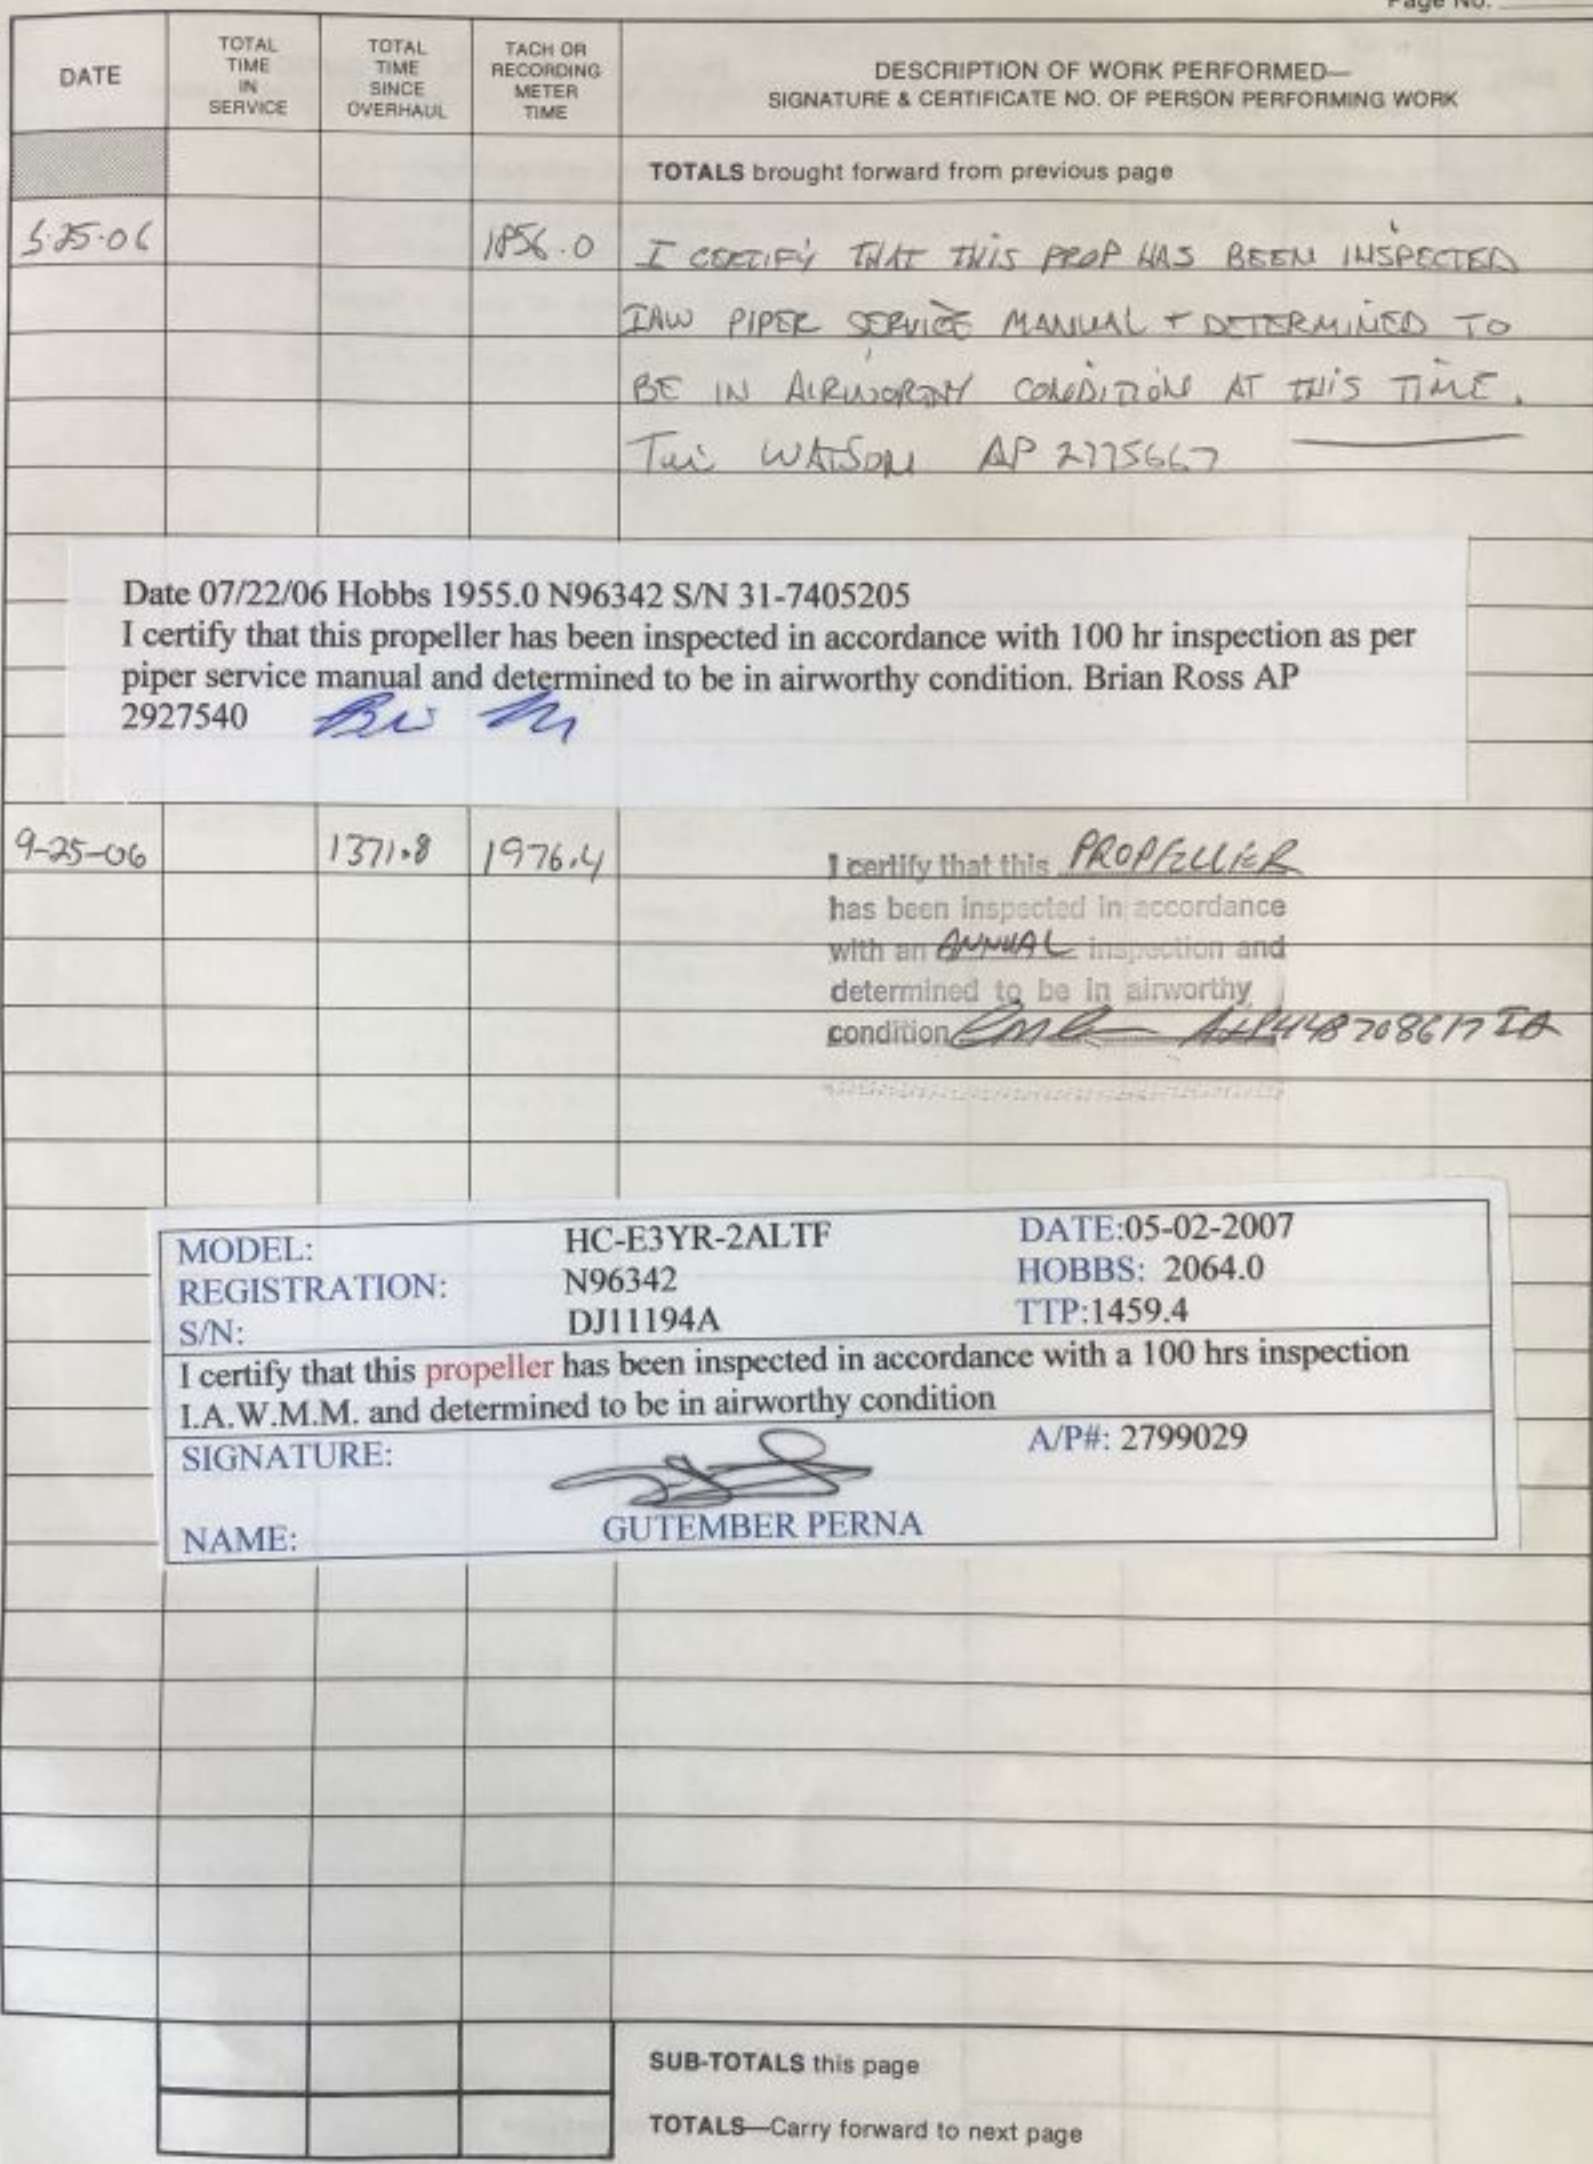 Page No.
DATE
TOTAL TIME IN SERVICE
TOTAL TIME SINCE OVERHAUL
TACH OR RECORDING METER TIME
DESCRIPTION OF WORK PERFORMED—
SIGNATURE & CERTIFICATE NO. OF PERSON PERFORMING WORK
TOTALS brought forward from previous page
5-25-06 1856.0 I CERTIFY THAT THIS PROP HAS BEEN INSPECTED
IAW PIPER SERVICE MANUAL + DETERMINED TO
BE IN AIRWORTHY CONDITION AT THIS TIME.
WATSON AP 2775667
Date 07/22/06 Hobbs 1955.0 N96342 S/N 31-7405205
I certify that this propeller has been inspected in accordance with 100 hr inspection as per
piper service manual and determined to be in airworthy condition. Brian Ross AP
2927540
9-25-06 1371.8 1976.4 I certify that this PROPELLER
has been inspected in accordance
with an ANNUAL inspection and
determined to be in airworthy
condition A&P448708617 IA
MODEL: HC-E3YR-2ALTF DATE:05-02-2007
REGISTRATION: N96342 HOBBS: 2064.0
S/N: DJ11194A TTP:1459.4
I certify that this propeller has been inspected in accordance with a 100 hrs inspection
I.A.W.M.M. and determined to be in airworthy condition
SIGNATURE: A/P#: 2799029
NAME: GUTEMBER PERNA
SUB-TOTALS this page
TOTALS—Carry forward to next page